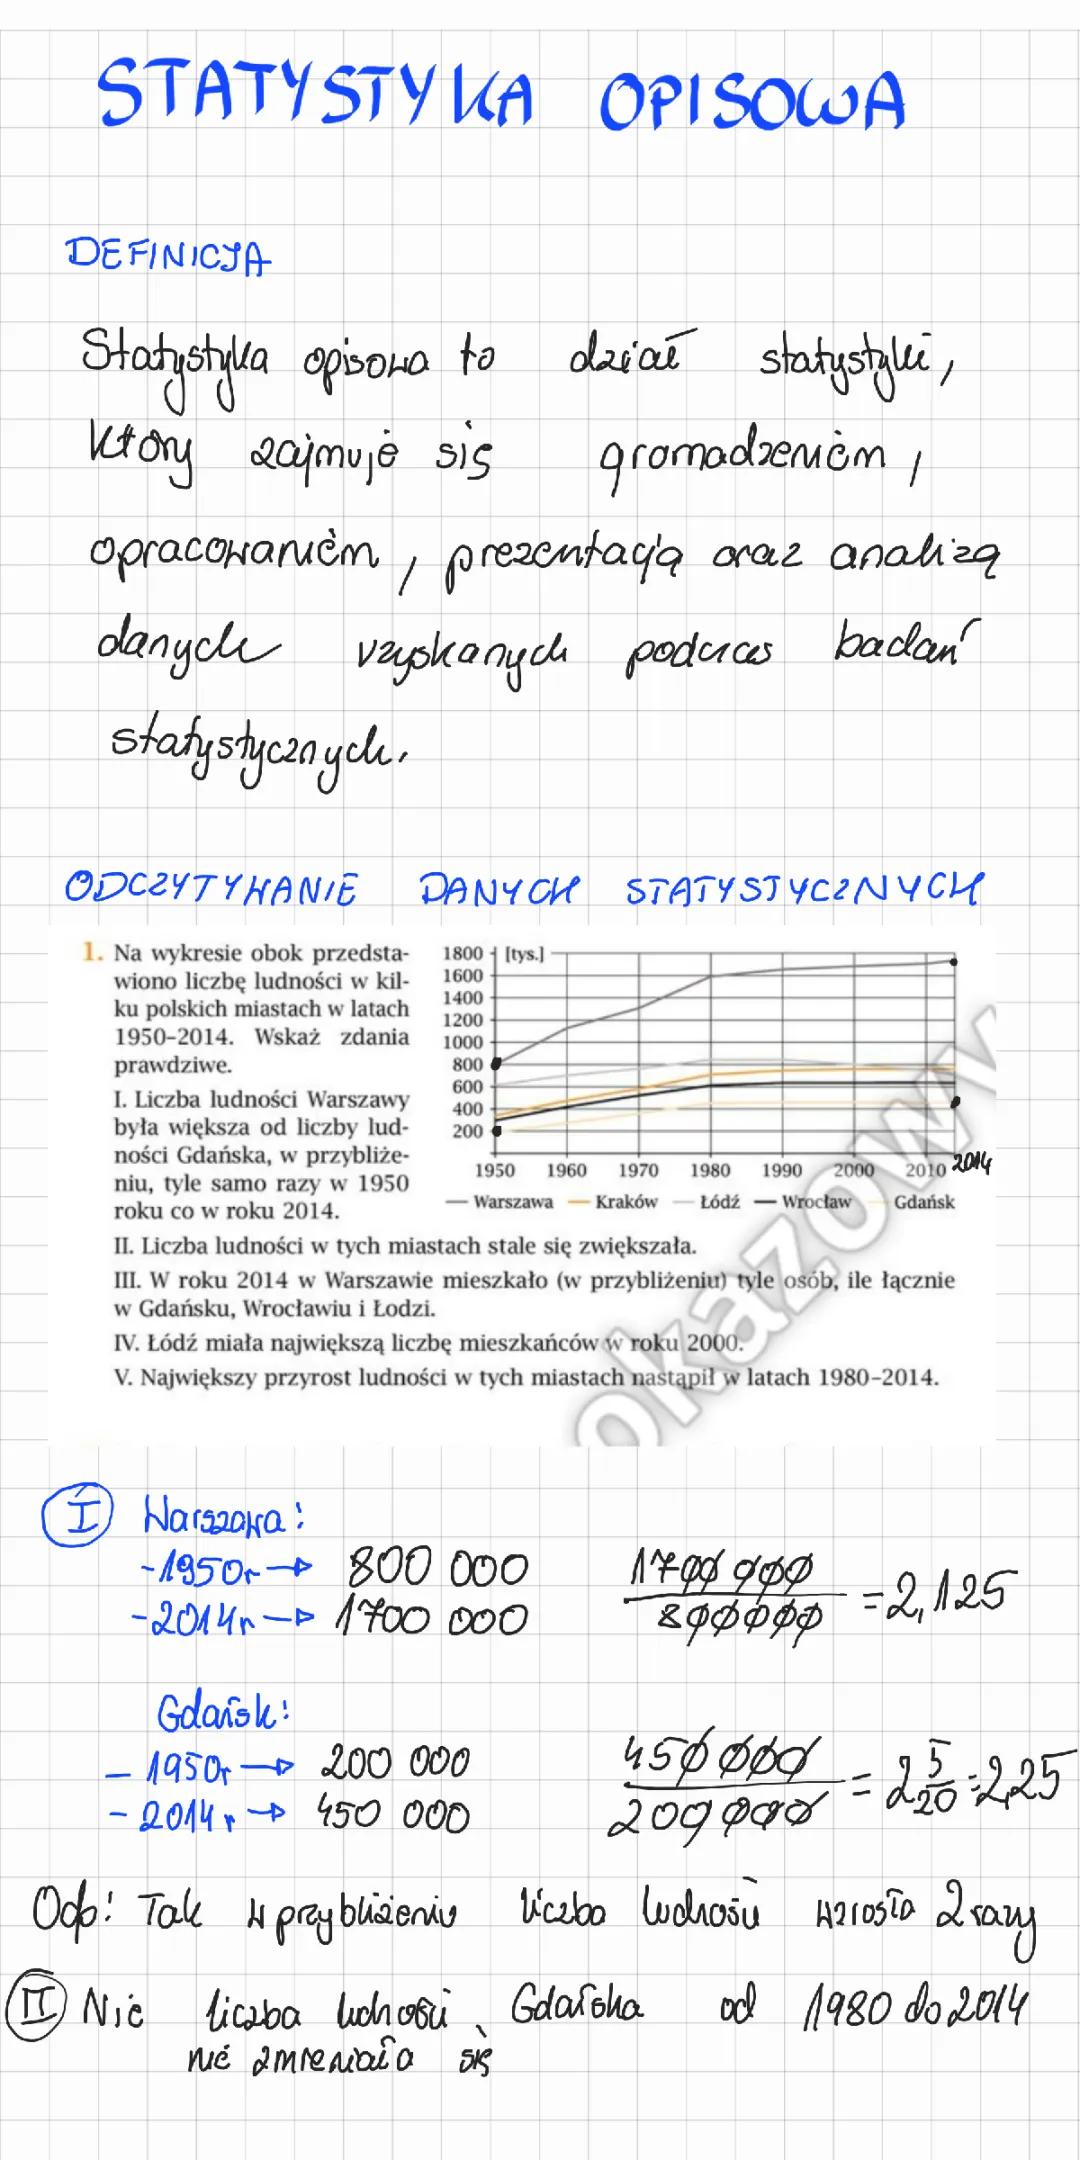 STATYSTYKA OPISOWA
DEFINICJA
Statystyka opisowa to dział statystyki,
który zajmuje się gromadzeniem,
opracowaniem, prezentacją oraz analizą
danych uzyskanych podczas badań
statystycznych.
ODCZYTYWANIE DANYCH STATYSTYCZNYCH
1. Na wykresie obok przedsta-
wiono liczbę ludności w kil-
ku polskich miastach w latach
1950–2014. Wskaż zdania
prawdziwe.
I. Liczba ludności Warszawy
była większa od liczby lud-
ności Gdańska, w przybliże-
niu, tyle samo razy w 1950
roku co w roku 2014.
1800 [tys.]
1600
1400
1200
1000
800
600
400
200
1950 1960 1970 1980 1990 2000 2010 2014
Warszawa Kraków Łódź Wrocław Gdańsk
II. Liczba ludności w tych miastach stale się zwiększała.
III. W roku 2014 w Warszawie mieszkało (w przybliżeniu) tyle osób, ile łącznie
w Gdańsku, Wrocławiu i Łodzi.
IV. Łódź miała największą liczbę mieszkańców w roku 2000.
V. Największy przyrost ludności w tych miastach nastąpił w latach 1980–2014.
okazowy
I Warszawa:
-1950r → 800 000
-2014r → 1700 000
1700 000 / 800000 = 2,125
Gdańsk:
- 1950r → 200 000
- 2014r → 450 000
450 000 / 200 000 = 2 5/20 = 2,25
Odp: Tak w przybliżeniu liczba ludności wzrosła 2 razy
II Nie liczba ludności Gdańska od 1980 do 2014
nie zmieniała się